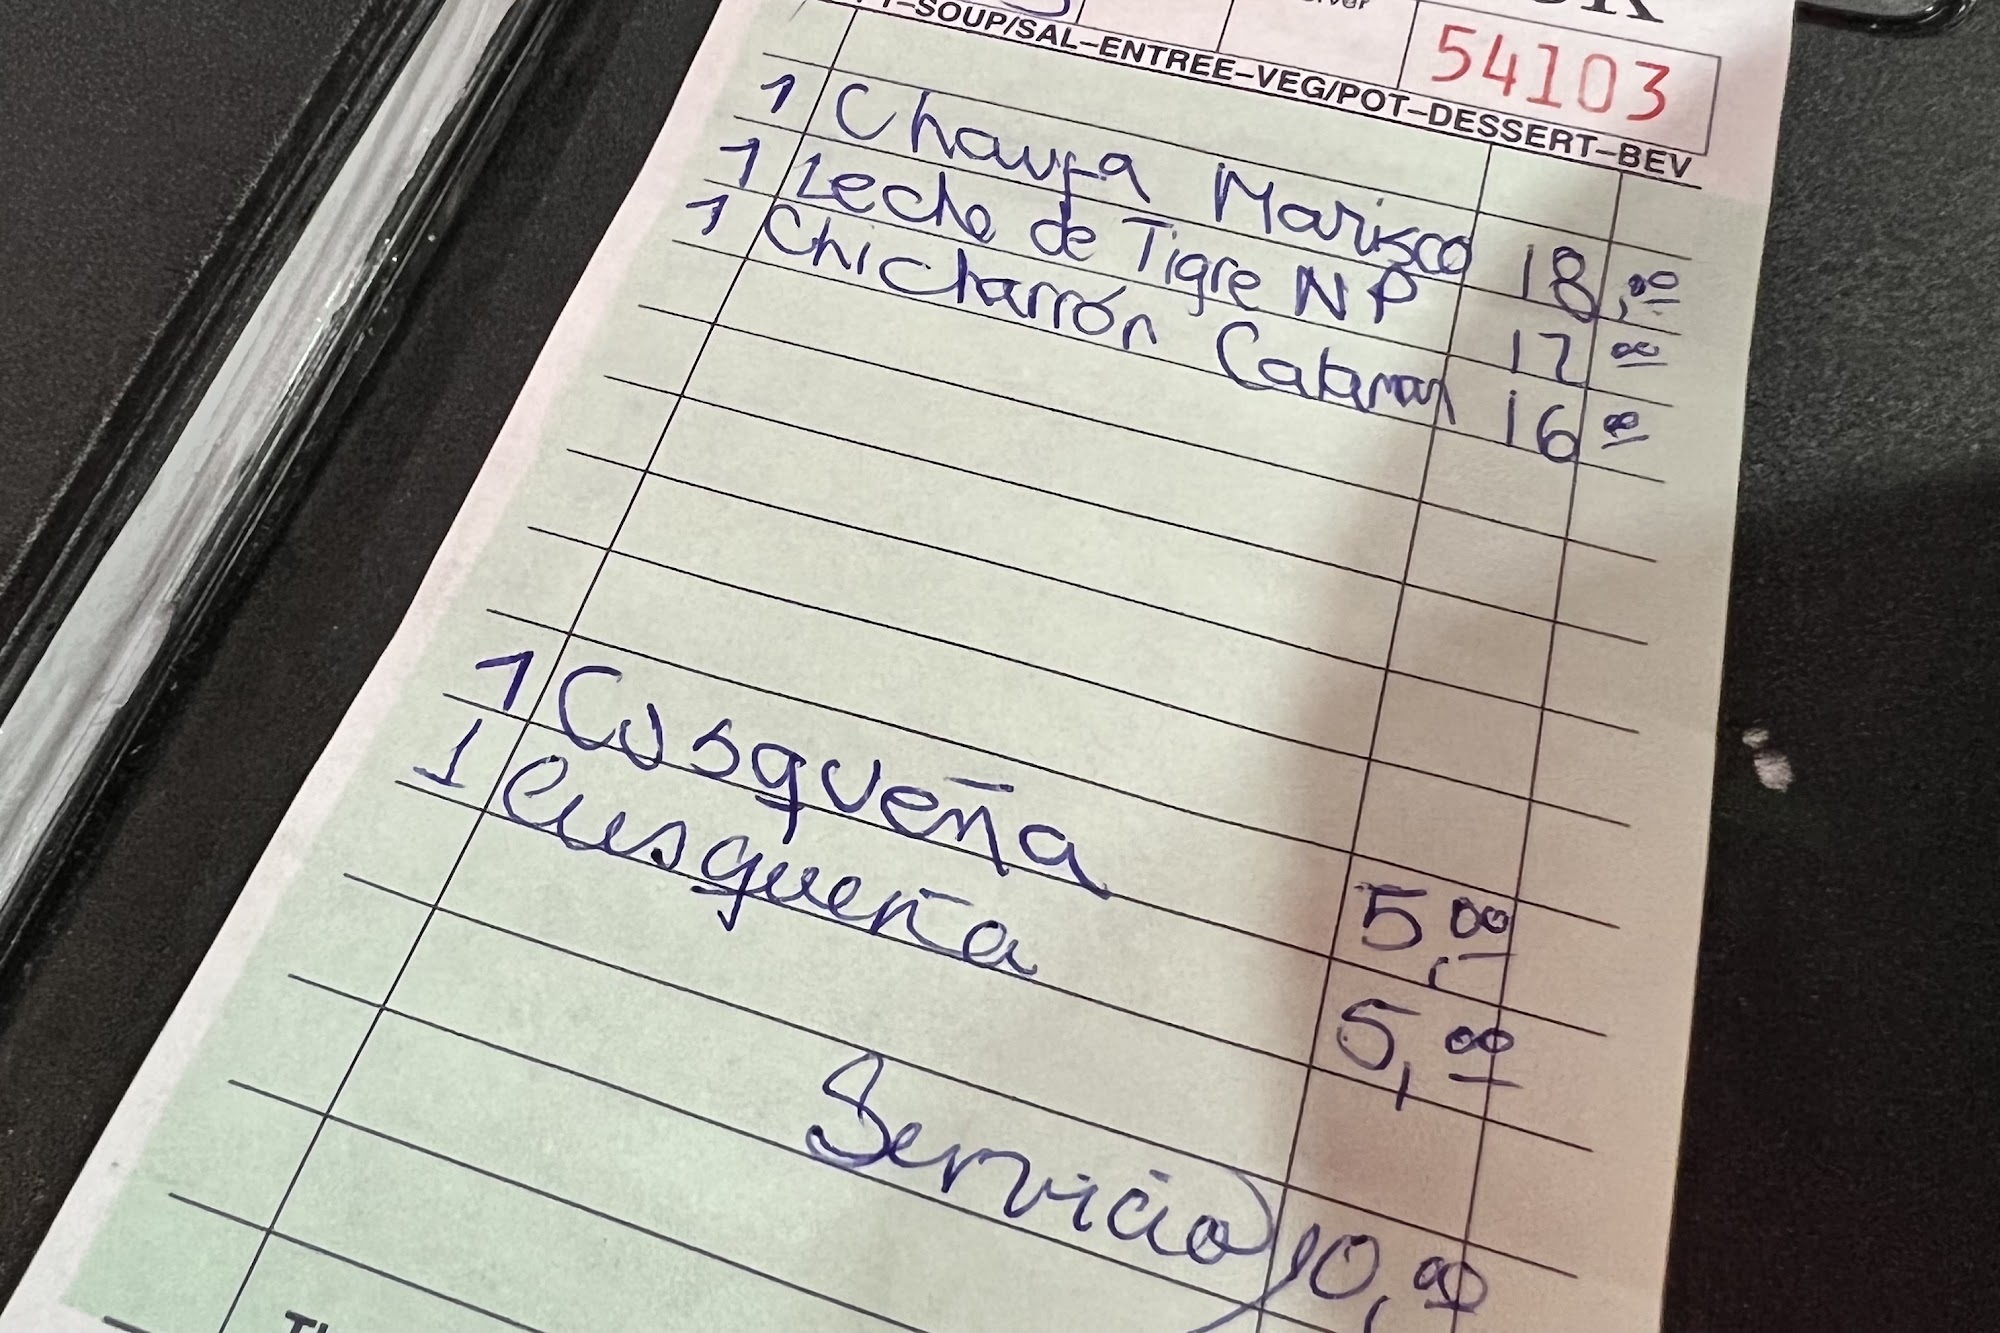 54103
SOUP/SAL–ENTREE–VEG/POT–DESSERT–BEV
1 Chaufa Marisco 18,00
1 Leche de Tigre NP 17 00
1 Chicharrón Calamar 16 00
1 Cusqueña 5,00
1 Cusqueña 5,00
Servicio 10,00